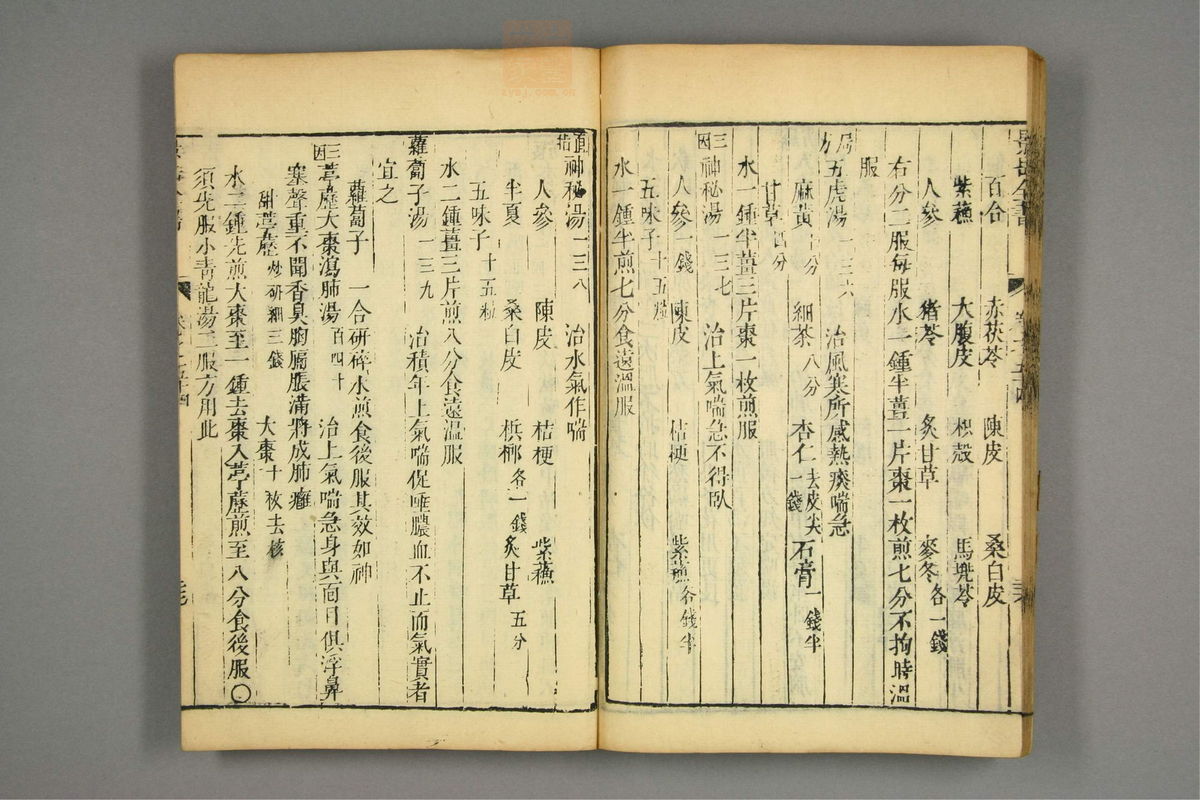 景岳全書
百合 赤茯苓 陳皮 桑白皮
紫蘇 大腹皮 枳殼 馬兜苓
人參 猪苓 炙甘草 麥冬各一錢
右分二服每服水一鍾半薑一片棗一枚煎七分不拘時溫
服
局方五虎湯一三六 治風寒所感熱痰喘急
麻黃 細茶八分 杏仁去皮尖一錢 石膏一錢半
甘草四分
水一鍾半薑三片棗一枚煎服
三因神秘湯一三七 治上氣喘急不得臥
人參一錢 陳皮 桔梗 紫蘇各錢半
五味子十五粒
水一鍾半煎七分食遠溫服
直指神秘湯一三八 治水氣作喘
人參 陳皮 桔梗 紫蘇
半夏 桑白皮 檳榔各一錢 炙甘草五分
五味子十五粒
水二鍾薑三片煎八分食遠溫服
蘿蔔子湯一三九 治積年上氣喘促唾膿血不止而氣實者
宜之
蘿蔔子一合研碎水煎食後服其效如神
三因葶藶大棗瀉肺湯百四十 治上氣喘急身與面目俱浮鼻
塞聲重不聞香臭胸膈脹滿將成肺癰
甜葶藶炒研細三錢 大棗十枚去核
水三鍾先煎大棗至一鍾去棗入葶藶煎至八分食後服〇
須先服小青龍湯三服方用此
zysj.com.cn